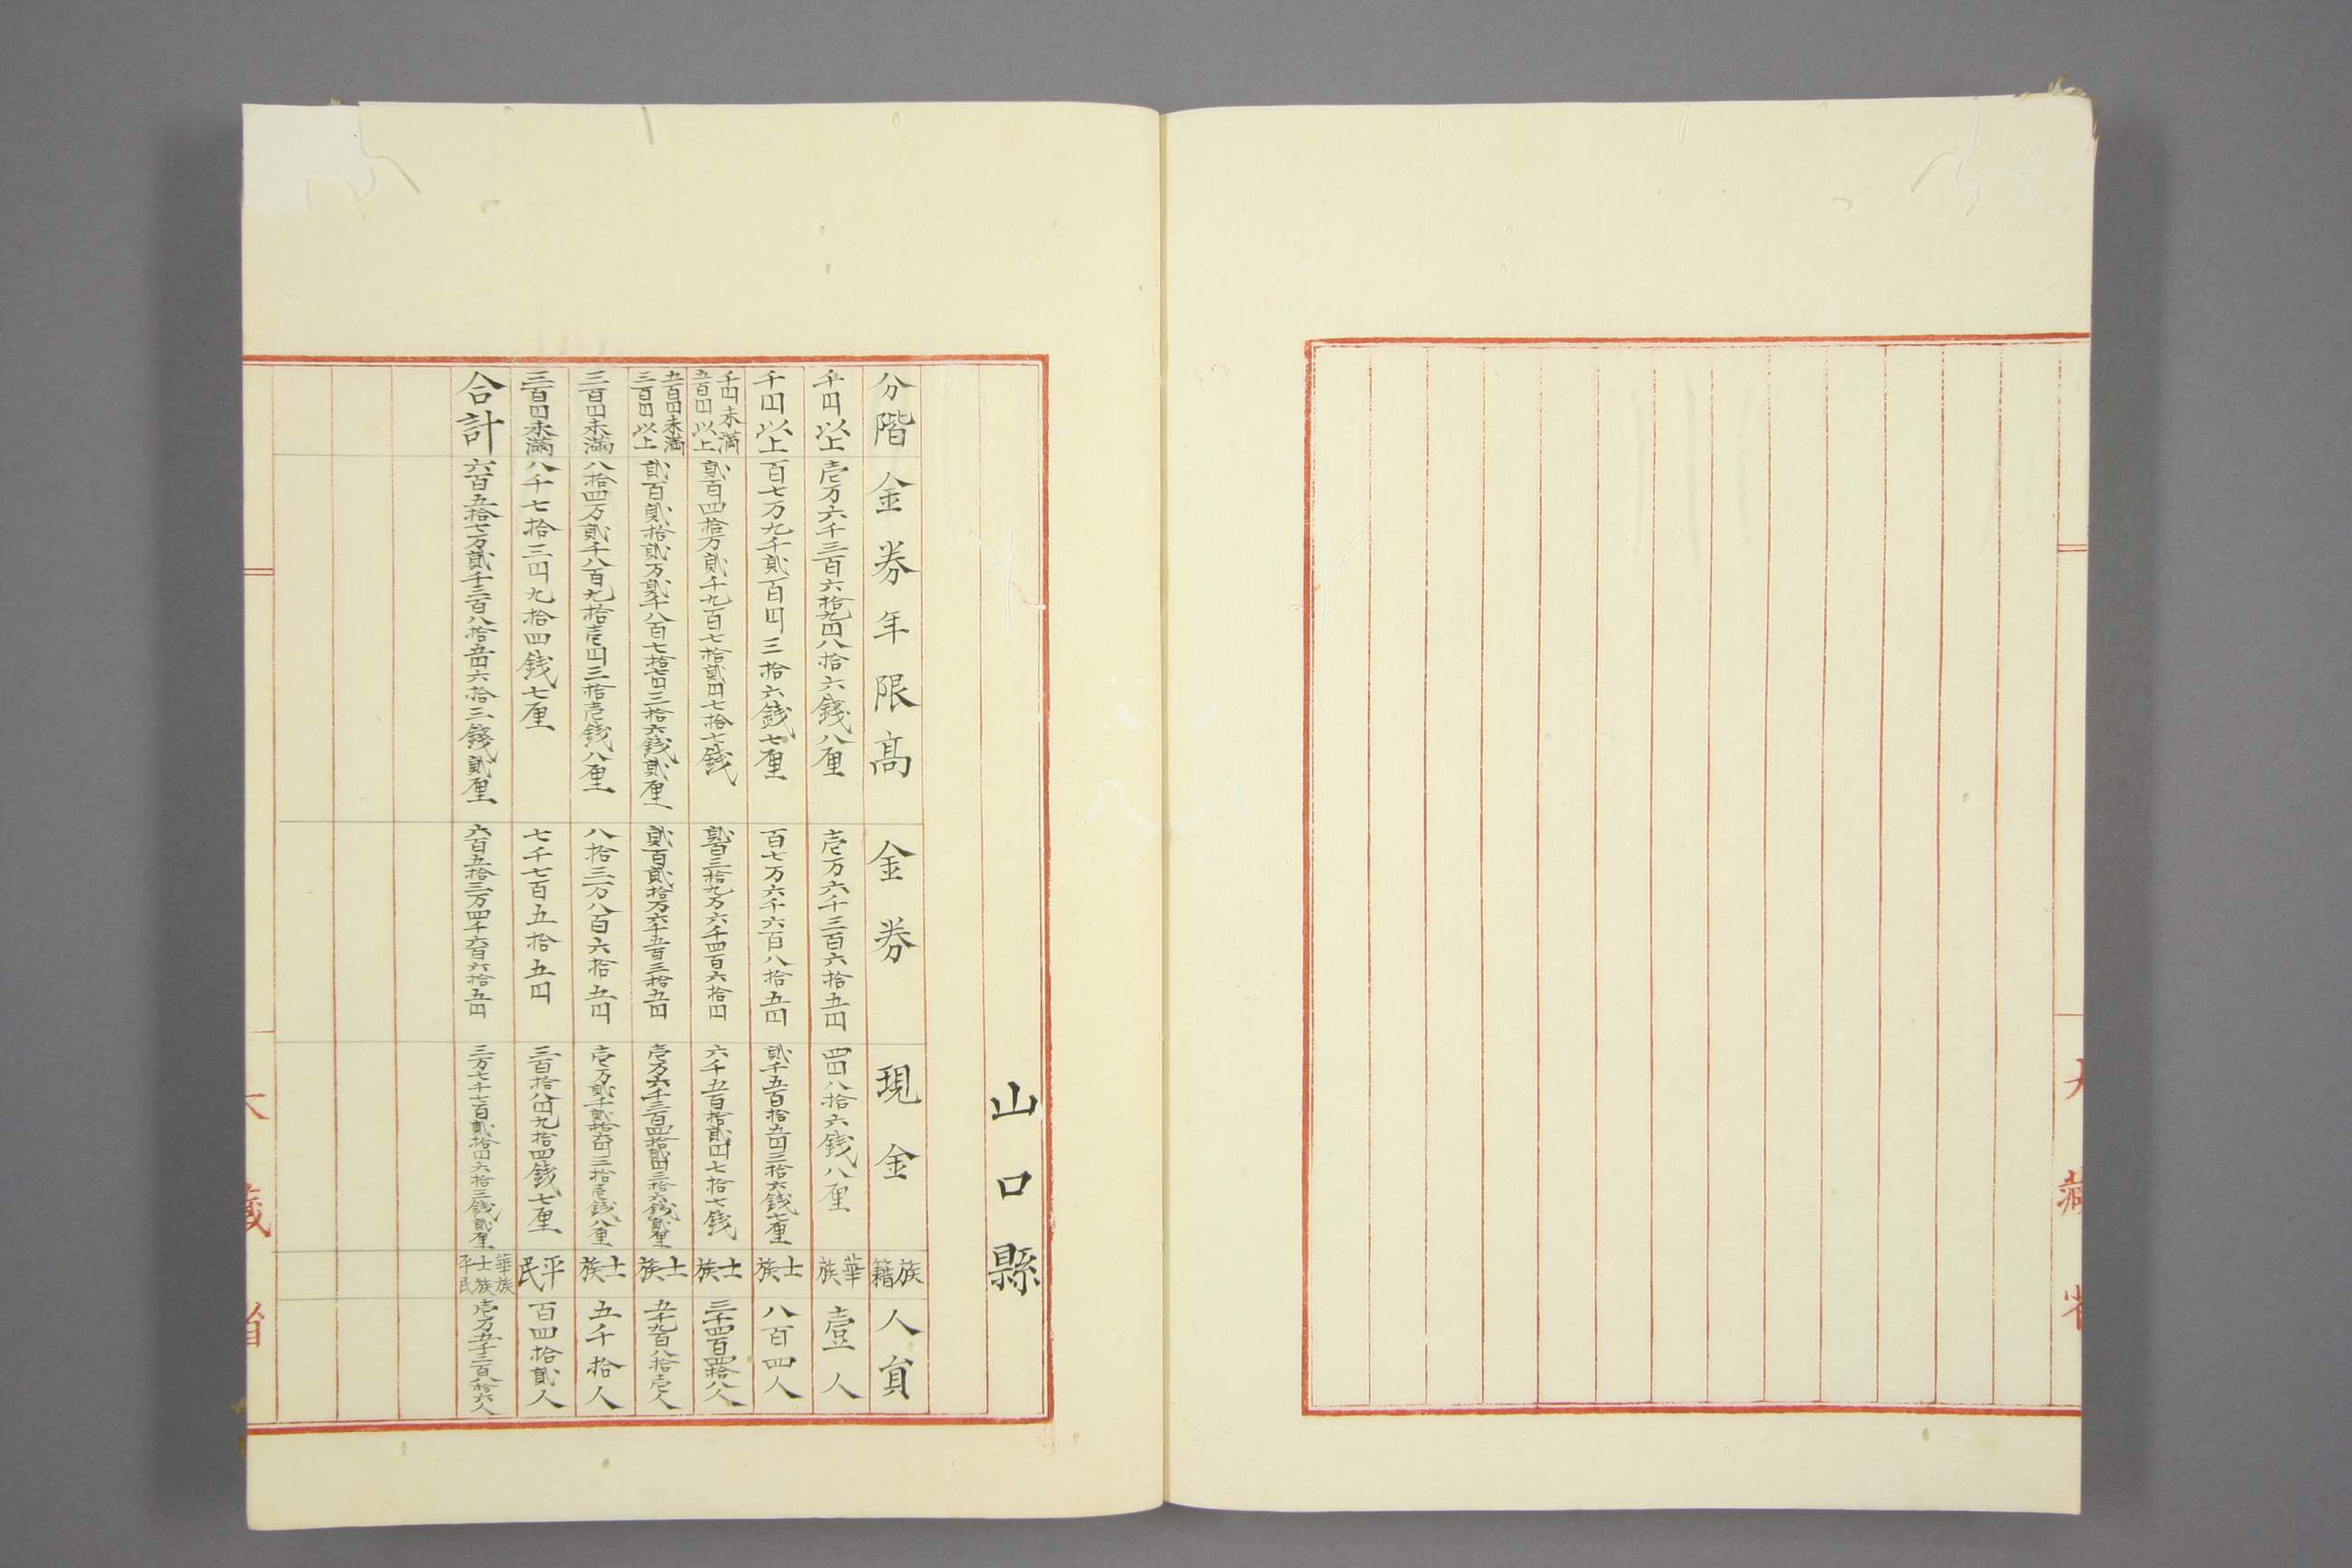 山口縣
分階 金券年限高 金券 現金 族籍 人員
千円以上 壱万六千三百六拾九円八拾六銭八厘 壱万六千三百六拾五円 四円八拾六銭八厘 華族 壹人
千円以上 百七万九千貳百円三拾六銭七厘 百七万六千六百八拾五円 貳千五百拾五円三拾六銭七厘 士族 八百四人
千円未満五百円以上 貳百四拾万貳千九百七拾貳円七拾七銭 貳百三拾九万六千四百六拾円 六千五百拾貳円七拾七銭 士族 三千四百四拾八人
五百円未満三百円以上 貳百貳拾貳万貳千八百七拾七円三拾六銭貳厘 貳百貳拾万六千五百三拾五円 壱万六千三百四拾貳円三拾六銭貳厘 士族 五千九百八拾壱人
三百円未満 八拾四万貳千八百九拾壱円三拾壱銭八厘 八拾三万八百六拾五円 壱万貳千貳拾六円三拾壱銭八厘 士族 五千拾人
三百円未満 八千七拾三円九拾四銭七厘 七千七百五拾五円 三百拾八円九拾四銭七厘 平民 百四拾貳人
合計 六百五拾七万貳千三百八拾五円六拾三銭貳厘 六百五拾三万四千六百六拾五円 三万七千七百貳拾円六拾三銭貳厘 華族士族平民 壱万五千三百八拾六人
大藏省